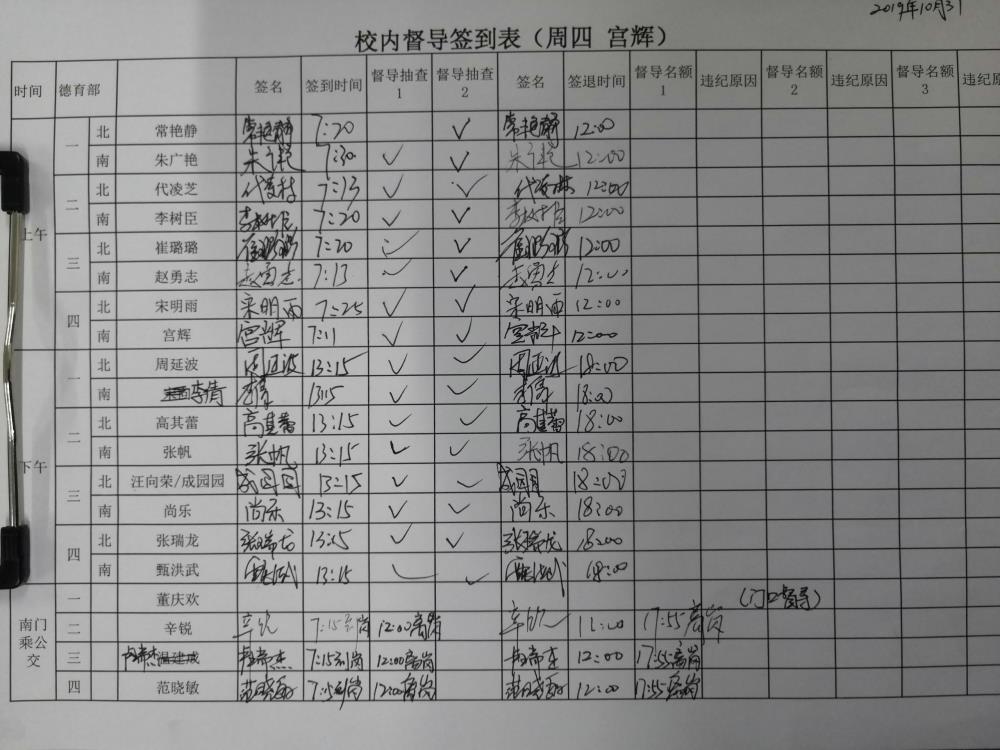 2019年10月31
校内督导签到表（周四 宫辉）
时间 德育部 签名 签到时间 督导抽查1 督导抽查2 签名 签退时间 督导名额1 违纪原因 督导名额2 违纪原因 督导名额3 违纪原
上午 一 北 常艳静 常艳静 7:20 ✓ 常艳静 12:00
南 朱广艳 朱广艳 7:30 ✓ ✓ 朱广艳 12:00
二 北 代凌芝 代凌芝 7:13 ✓ ✓ 12:00
南 李树臣 李树臣 7:20 ✓ ✓ 李树臣 12:00
三 北 崔璐璐 崔璐璐 7:20 ✓ ✓ 崔璐璐 12:00
南 赵勇志 赵勇志 7:13 ✓ ✓ 赵勇志 12:00
四 北 宋明雨 宋明雨 7:25 ✓ ✓ 宋明雨 12:00
南 宫辉 宫辉 7:11 ✓ ✓ 宫辉 12:00
下午 一 北 周延波 周延波 13:15 ✓ ✓ 周延波 18:00
南 李倩 李倩 13:15 ✓ ✓ 李倩 18:00
二 北 高其蕾 高其蕾 13:15 ✓ ✓ 高其蕾 18:00
南 张帆 张帆 13:15 ✓ ✓ 张帆 18:00
三 北 汪向荣/成园园 成园园 13:15 ✓ ✓ 成园园 18:00
南 尚乐 尚乐 13:15 ✓ ✓ 尚乐 18:00
四 北 张瑞龙 张瑞龙 13:15 ✓ ✓ 张瑞龙 18:00
南 甄洪武 甄洪武 13:15 ✓ ✓ 甄洪武 18:00
南门乘公交 一 董庆欢 (门口督导)
二 辛锐 辛锐 7:15到岗 12:00离岗 辛锐 12:00 17:55离岗
三 7:15到岗 12:00离岗 12:00 17:55离岗
四 范晓敏 范晓敏 7:15到岗 12:00离岗 范晓敏 12:00 17:55离岗